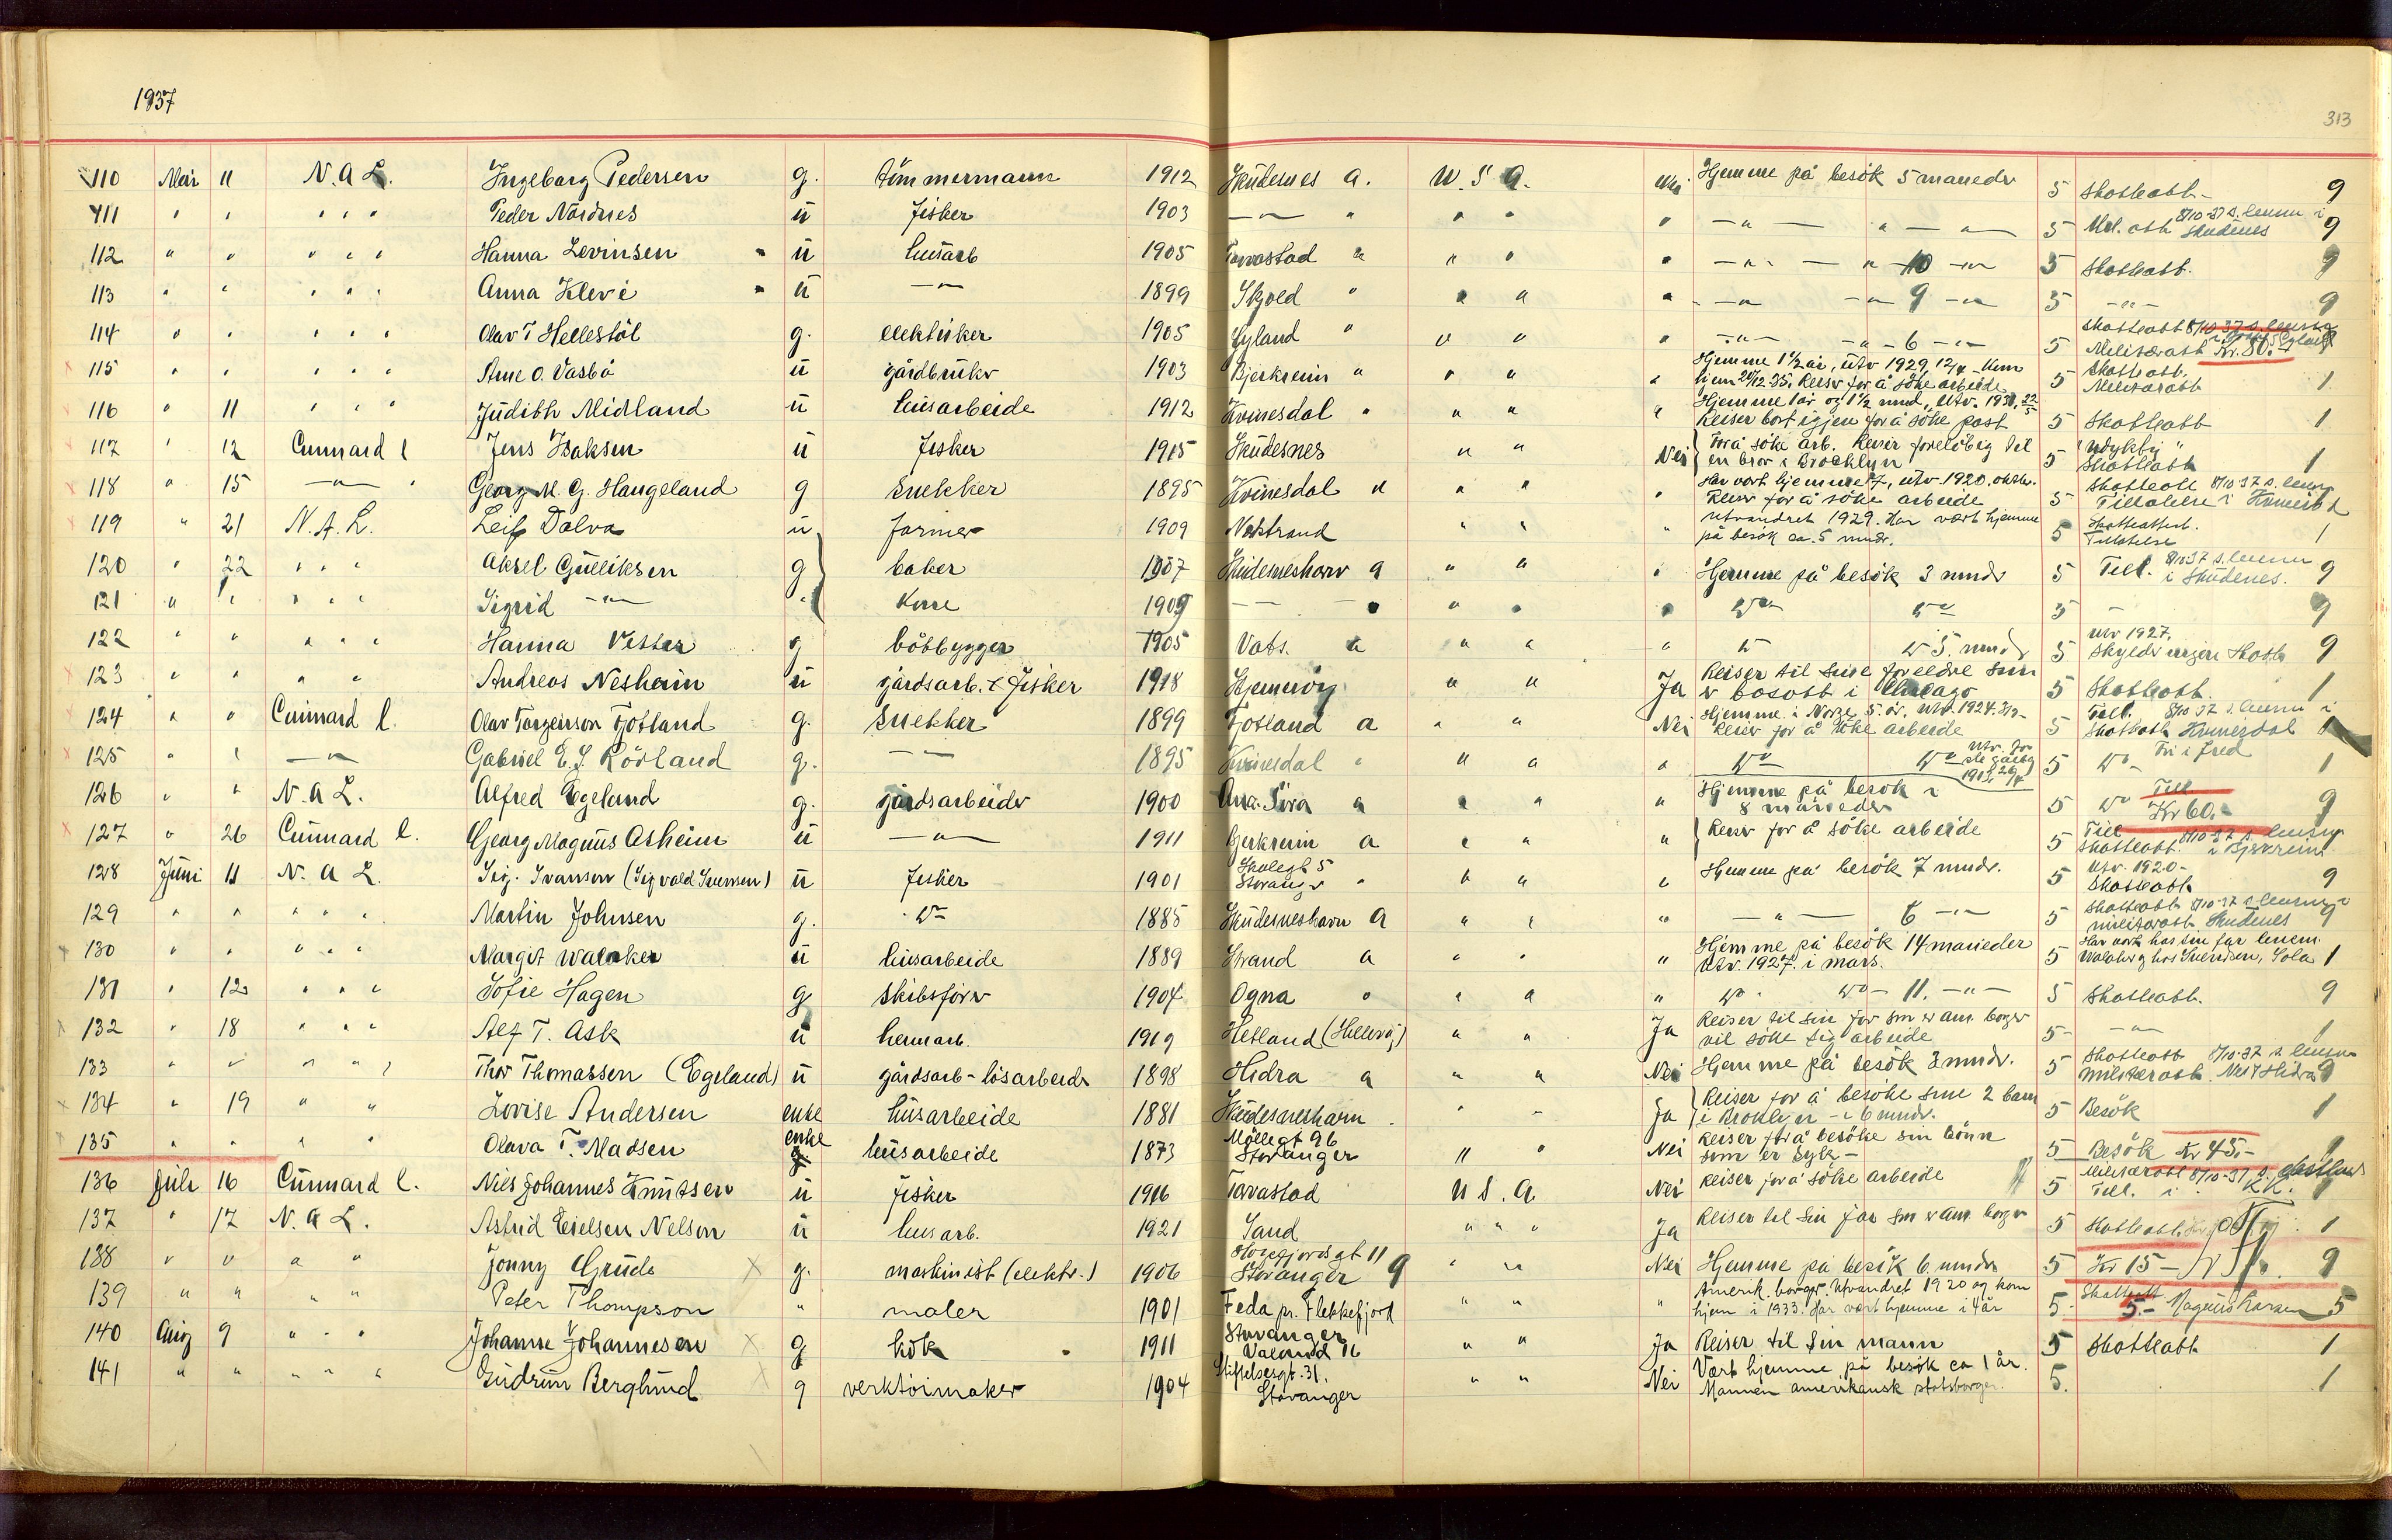 1937
313
110 Mai 11 N. A L. Ingeborg Pedersen g. tömmermann 1912 Skudesnes a. U. S A. Nei Hjemme på besök 5 maneder 5 Skatteatt. 9
111 " " " " " Peder Nordnes ü fisker 1903 —"— " " " " —"— " — " — 5 Mil. att 8/10-37 s. lensm i Skudenes 9
112 " " " " " Hanna Levinsen ü husarb 1905 Torvastad " " " " —"— — " 10 —"— 5 Skatteatt. 9
113 " " " " " Anna Kleve ü —"— 1899 Skjold " " " " —"— —"— 9 —"— 5 —"— 9
114 " " " " " Olav T Hellestöl g. elektriker 1905 Hyland " " " " —"— —"— 6 —"— 5 Skatteatt 8/10 37 s. lensm Militæratt Kr. 80.-
115 " " " " " Arne O. Vasbö ü gårdbruker 1903 Bjerkreim " " " " Hjemme 1½ år, utv 1929, 12/4 - Kom hjem 20/12 35. Reiser for å söke arbeide 5 Skatteatt. Militæratt 1
116 " 11 " " " Judith Midland ü husarbeide 1912 Kvinesdal " " " " Hjemme 1 år og 1½ mnd, Utv. 1930, 22/5 Reiser bort igjen for å söke post 5 Skatteatt 1
117 " 12 Cunnard l Jens Isaksen ü fisker 1915 Skudesnes " " Nei for å söke arb. Reiser foreløbig til en bror i Brooklyn 5 Skatteatt 1
118 " 15 —"— Georg M. G. Haugeland g snekker 1895 Kvinesdal " " " " Har vært hjemme, utv. 1920, oktbr. Reiser for å söke arbeide 5 Skatteatt 8/10 37 s. lensm Tillatelse i
119 " 21 N. A. L. Leif Dalva ü farmer 1909 Nærstrand " " " Utvandret 1929. Har vært hjemme på besök ca. 5 mndr. 5 Skatteattest. Tillatelse 1
120 " 22 " " " Aksel Gulliksen g baker 1907 Skudesneshavn a " " " Hjemme på besök 3 mndr 5 Till. 8/10 37 s. lensm i Skudenes. 9
121 " " " " " Sigrid —"— " kone 1909 — — " " " " Do Do 5 — 9
122 " " " " " Hanna Vestar g båtbygger 1905 Vats. a " " " Do Do 5. mnd 5 Utv 1927, Skylder ingen Skatt 9
123 " " " " Andreas Neshein ü gårdsarb. & fisker 1918 " " Ja Reiser til sine foreldre som er bosatt i Chicago 5 Skatteatt. 1
124 " " Cunnard l. Olav Torgeirson Fotland g. snekker 1899 Fotland a " " Nei Hjemme i Norge 5. år. Utv. 1924. 3/12- Reiser for å söke arbeide 5 Till. 8/10 37 s. lensm i Skatteatt Kvinesdal 1
125 " " —"— Gabriel E. J. Rörland g. —"— 1895 Kvinesdal " " " " Do Do 5 Do Fri i fred 1
126 " " N. A L. Alfred Egeland g. gårdsarbeider 1900 Ana. Sira a " " " Hjemme på besök i 8 måneder 5 Do Till Kr 60.- 9
127 " 26 Cunnard l. Georg Magnus Asheim ü —"— 1911 Bjerkreim a " " " Reiser for å söke arbeide 5 Till 8/10-37 s. lensm Skatteatt. i Bjerkreim
128 Juni 11 N. A L. Sig. Svanson (Sigvald Svensen) ü fisker 1901 Skolegt 5 Stavanger " " " " Hjemme på besök 7 mndr. 5 Utv. 1920- Skatteatt 9
129 " " " " " Martin Johnsen g. Do 1885 Skudesneshavn a " " " —"— 6 —"— 5 Skatteatt 8/10-37 s. lensm i militæratt Skudenes 9
130 " " " " " Margit Walaker ü husarbeide 1889 Strand a " " " Hjemme på besök 14 maneder Utv. 1927 i mars. 5 Har vært hos sin far lensm. Walaker og hos Svendsen, Sola 1
131 " 12 " " " Sofie Hagen g skibsförer 1904 Ogna " " " " Do Do — 11. —"— 5 Skatteatt. 9
132 " 18 " " " Alf T. Ask ü hermarb. 1919 Hetland (Hillevåg) " " Ja Reiser til sin far som er am. borger vil söke sig arbeide 5 —"— 1
133 " " " " " Thor Thomassen (Egeland) ü gårdsarb - lösarbeider 1898 Hidra a " " Nei Hjemme på besök 3 mndr. 5 Skatteatt 8/10-37 s. lensm militæratt. Nes & Hidra 9
134 " 19 " " Lovise Andersen enke husarbeide 1881 Skudesneshavn " " Ja Reiser for å besöke sine 2 barn i Broklyn - i 6 mndr. 5 Besök 1
135 " " " " Olava T. Madsen enke husarbeide 1873 Möllegt 96 Stavanger " " Nei Reiser for å besöke sin sönn som er syk - 5 Besök Kr 45.-
136 Juli 16 Cunnard l. Nils Johannes Knutsen ü fisker 1916 Torvastad U S. A. Nei Reiser for å söke arbeide 5 Militæratt 8/10-37 s. Till. i
137 " 17 N. A L. Astrid Eielsen Nelson ü husarb. 1921 Sand " " " Ja Reiser til sin far som er am. borger 5 Skatteatt. 1
138 " " " " Jonny Grude g. maskinist (elektr.) 1906 Horgefjordsgt 11 Stavanger 9 " " Nei Hjemme på besök 6 mndr 5 Kr 15 - 9
139 " " " " Peter Thompson " maler 1901 Feda pr. Flekkefjord " " " Amerik. borger. Utvandret 1920 og kom hjem i 1933. Har vært hjemme i 4 år 5. Skatteatt 5.- Magnus 5
140 Aug 9 " " " Johanne Johannesen g kok 1911 Stavanger 16 " " Ja Reiser til sin mann 5 Skatteatt 1
141 " " " " " Gudrun Berglund g verktöimaker 1904 Stiftelsesgt. 31. Stavanger " " Nei Vært hjemme på besök ca 1 år. Mannen amerikansk statsborger. 5. 1